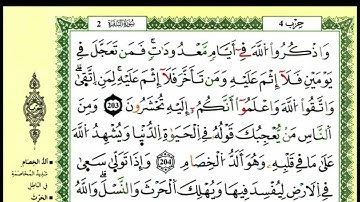 حزب 4
سورة البقرة
2
وَاذْكُرُوا اللَّهَ فِي أَيَّامٍ مَعْدُودَاتٍ فَمَن تَعَجَّلَ فِي
يَوْمَيْنِ فَلَا إِثْمَ عَلَيْهِ وَمَن تَأَخَّرَ فَلَا إِثْمَ عَلَيْهِ لِمَنِ اتَّقَى
وَاتَّقُوا اللَّهَ وَاعْلَمُوا أَنَّكُمْ إِلَيْهِ تُحْشَرُونَ 203 وَمِنَ
النَّاسِ مَن يُعْجِبُكَ قَوْلُهُ فِي الْحَيَاةِ الدُّنْيَا وَيُشْهِدُ اللَّهَ
عَلَى مَا فِي قَلْبِهِ وَهُوَ أَلَدُّ الْخِصَامِ 204 وَإِذَا تَوَلَّى سَعَى
فِي الْأَرْضِ لِيُفْسِدَ فِيهَا وَيُهْلِكَ الْحَرْثَ وَالنَّسْلَ وَاللَّهُ
ألد الخصام
شديد المخاصمة
في الباطل
الحرث